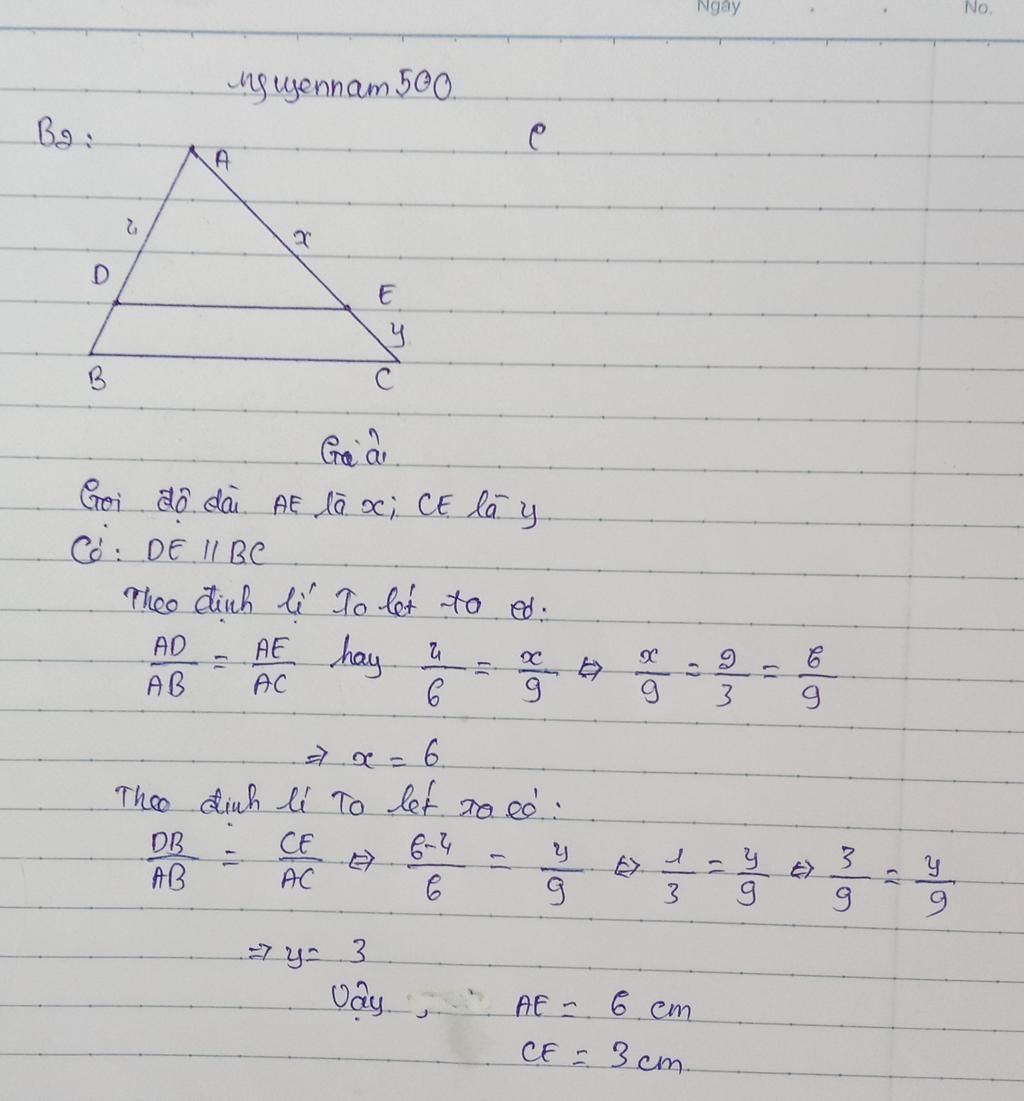 Ngày No.
nguyennam500
B2: e
A
4 x
D E
y
B C
Giải
Gọi độ dài AE là x; CE là y
Có: DE // BC
Theo định lí Ta lét ta có:
AD/AB = AE/AC hay 4/6 = x/9 ⇔ x/9 = 2/3 = 6/9
⇒ x = 6
Theo định lí Ta lét ta có:
DB/AB = CE/AC ⇔ 6-4/6 = y/9 ⇔ 1/3 = y/9 ⇔ 3/9 = y/9
⇒ y = 3
Vậy, AE = 6 cm
CE = 3 cm